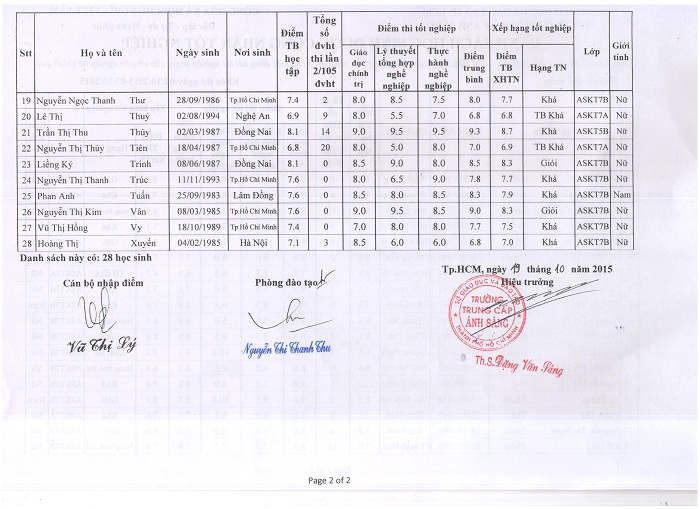 Stt Họ và tên Ngày sinh Nơi sinh Điểm TB học tập Tổng số đvht thi lần 2/105 đvht Điểm thi tốt nghiệp Xếp hạng tốt nghiệp Lớp Giới tính
Giáo dục chính trị Lý thuyết tổng hợp nghề nghiệp Thực hành nghề nghiệp Điểm trung bình Điểm TB XHTN Hạng TN
19 Nguyễn Ngọc Thanh Thư 28/09/1986 Tp.Hồ Chí Minh 7.4 2 8.0 8.5 7.5 8.0 7.7 Khá ASKT7B Nữ
20 Lê Thị Thuý 02/08/1994 Nghệ An 6.9 9 8.0 5.5 7.0 6.8 6.8 TB Khá ASKT7A Nữ
21 Trần Thị Thu Thủy 02/03/1987 Đồng Nai 8.1 14 9.0 9.5 9.5 9.3 8.7 Khá ASKT5B Nữ
22 Nguyễn Thị Thủy Tiên 18/04/1987 Tp.Hồ Chí Minh 6.8 20 8.0 5.0 8.0 7.0 6.9 TB Khá ASKT7A Nữ
23 Liềng Ký Trinh 08/06/1987 Đồng Nai 8.1 0 8.5 9.0 8.0 8.5 8.3 Giỏi ASKT7B Nữ
24 Nguyễn Thị Thanh Trúc 11/11/1993 Tp.Hồ Chí Minh 7.6 0 8.0 6.5 9.0 7.8 7.7 Khá ASKT7B Nữ
25 Phan Anh Tuấn 25/09/1983 Lâm Đồng 7.6 0 8.5 8.0 8.5 8.3 7.9 Khá ASKT7B Nam
26 Nguyễn Thị Kim Vân 08/03/1985 Tp.Hồ Chí Minh 7.6 0 9.0 9.5 8.5 9.0 8.3 Giỏi ASKT7B Nữ
27 Vũ Thị Hồng Vy 18/10/1989 Tp.Hồ Chí Minh 7.4 0 7.0 8.0 8.0 7.7 7.5 Khá ASKT7B Nữ
28 Hoàng Thị Xuyến 04/02/1985 Hà Nội 7.1 3 8.5 6.0 6.0 6.8 7.0 Khá ASKT7B Nữ
Danh sách này có: 28 học sinh
Tp.HCM, ngày 19 tháng 10 năm 2015
Cán bộ nhập điểm Phòng đào tạo Hiệu trưởng
SỞ GIÁO DỤC VÀ ĐÀO TẠO
TRƯỜNG
TRUNG CẤP
ÁNH SÁNG
THÀNH PHỐ HỒ CHÍ MINH
Vũ Thị Lý Nguyễn Thị Thanh Thu Th.S.Đặng Văn Sáng
Page 2 of 2